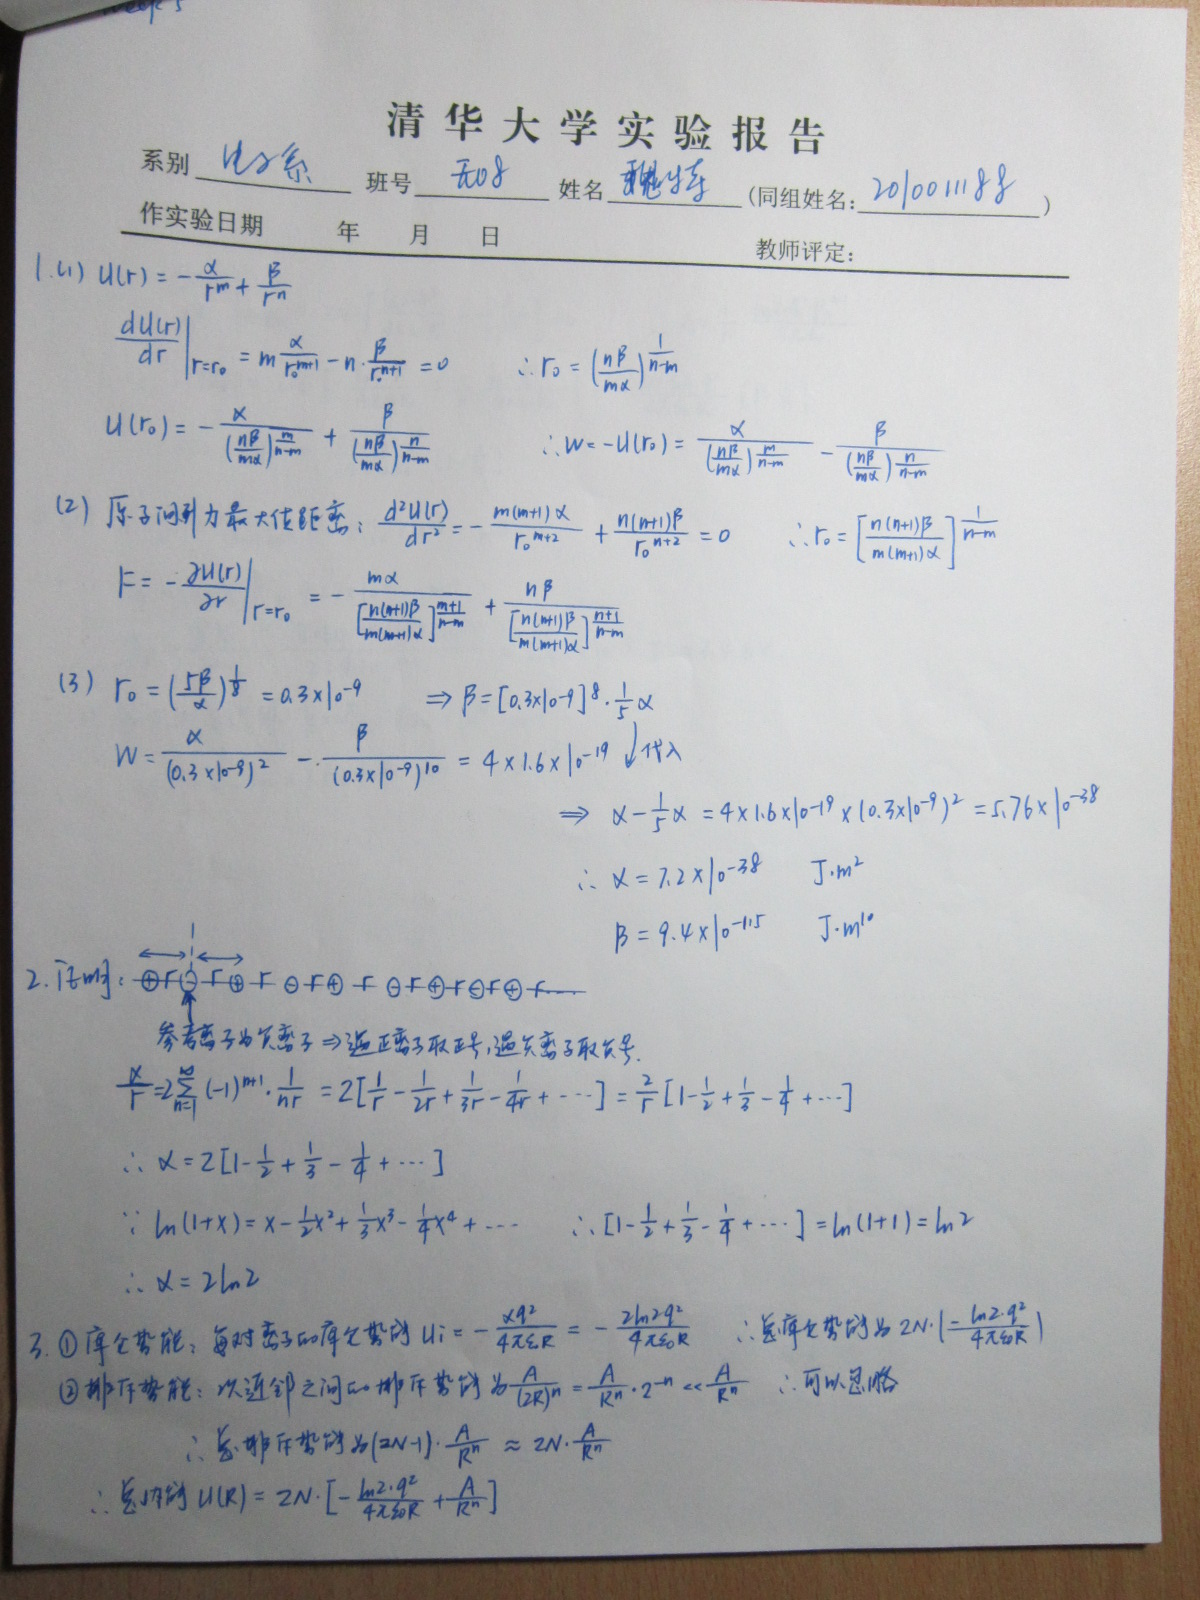 清华大学实验报告
系别 电子系 班号 无08 姓名 (同组姓名: 2010011188 )
作实验日期 年 月 日 教师评定:
1.(1) U(r) = -α/r^m + β/r^n
dU(r)/dr |_{r=r₀} = m α/r₀^{m+1} - n·β/r₀^{n+1} = 0 ∴ r₀ = (nβ/mα)^{1/(n-m)}
U(r₀) = - α/(nβ/mα)^{m/(n-m)} + β/(nβ/mα)^{n/(n-m)} ∴ W = -U(r₀) = α/(nβ/mα)^{m/(n-m)} - β/(nβ/mα)^{n/(n-m)}
(2) 原子间引力最大值距离: d²U(r)/dr² = - m(m+1)α/r₀^{m+2} + n(n+1)β/r₀^{n+2} = 0 ∴ r₀ = [n(n+1)β/m(m+1)α]^{1/(n-m)}
F = -∂U(r)/∂r |_{r=r₀} = - mα/[n(n+1)β/m(m+1)α]^{(m+1)/(n-m)} + nβ/[n(n+1)β/m(m+1)α]^{(n+1)/(n-m)}
(3) r₀ = (5β/α)^{1/8} = 0.3×10^{-9} ⇒ β = [0.3×10^{-9}]^8 · 1/5 α
W = α/(0.3×10^{-9})² - β/(0.3×10^{-9})^{10} = 4×1.6×10^{-19} ↓代入
⇒ α - 1/5 α = 4×1.6×10^{-19}×(0.3×10^{-9})² = 5.76×10^{-38}
∴ α = 7.2×10^{-38} J·m²
β = 9.4×10^{-115} J·m^{10}
2. 证明: ⊕ r ⊖ r ⊕ r ⊖ r ⊕ r ⊖ r ⊕ r ⊖ r ⊕ r ……
参考离子为负离子 ⇒ 遇正离子取正号,遇负离子取负号.
α/r = 2 Σ_{n=1}^{∞} (-1)^{n+1} · 1/nr = 2[1/r - 1/2r + 1/3r - 1/4r + ⋯] = 2/r [1 - 1/2 + 1/3 - 1/4 + ⋯]
∴ α = 2[1 - 1/2 + 1/3 - 1/4 + ⋯]
∵ ln(1+x) = x - 1/2 x² + 1/3 x³ - 1/4 x⁴ + ⋯ ∴ [1 - 1/2 + 1/3 - 1/4 + ⋯] = ln(1+1) = ln2
∴ α = 2ln2
3. ①库仑势能: 每对离子的库仑势能 Ui = - αq²/4πε₀R = - 2ln2q²/4πε₀R ∴ 总库仑势能为 2N·(- ln2·q²/4πε₀R)
②排斥势能: 次近邻之间的排斥势能为 A/(2R)^n = A/R^n · 2^{-n} << A/R^n ∴ 可以忽略
∴ 总排斥势能为 (2N-1)· A/R^n ≈ 2N· A/R^n
∴ 总内能 U(R) = 2N·[- ln2·q²/4πε₀R + A/R^n]